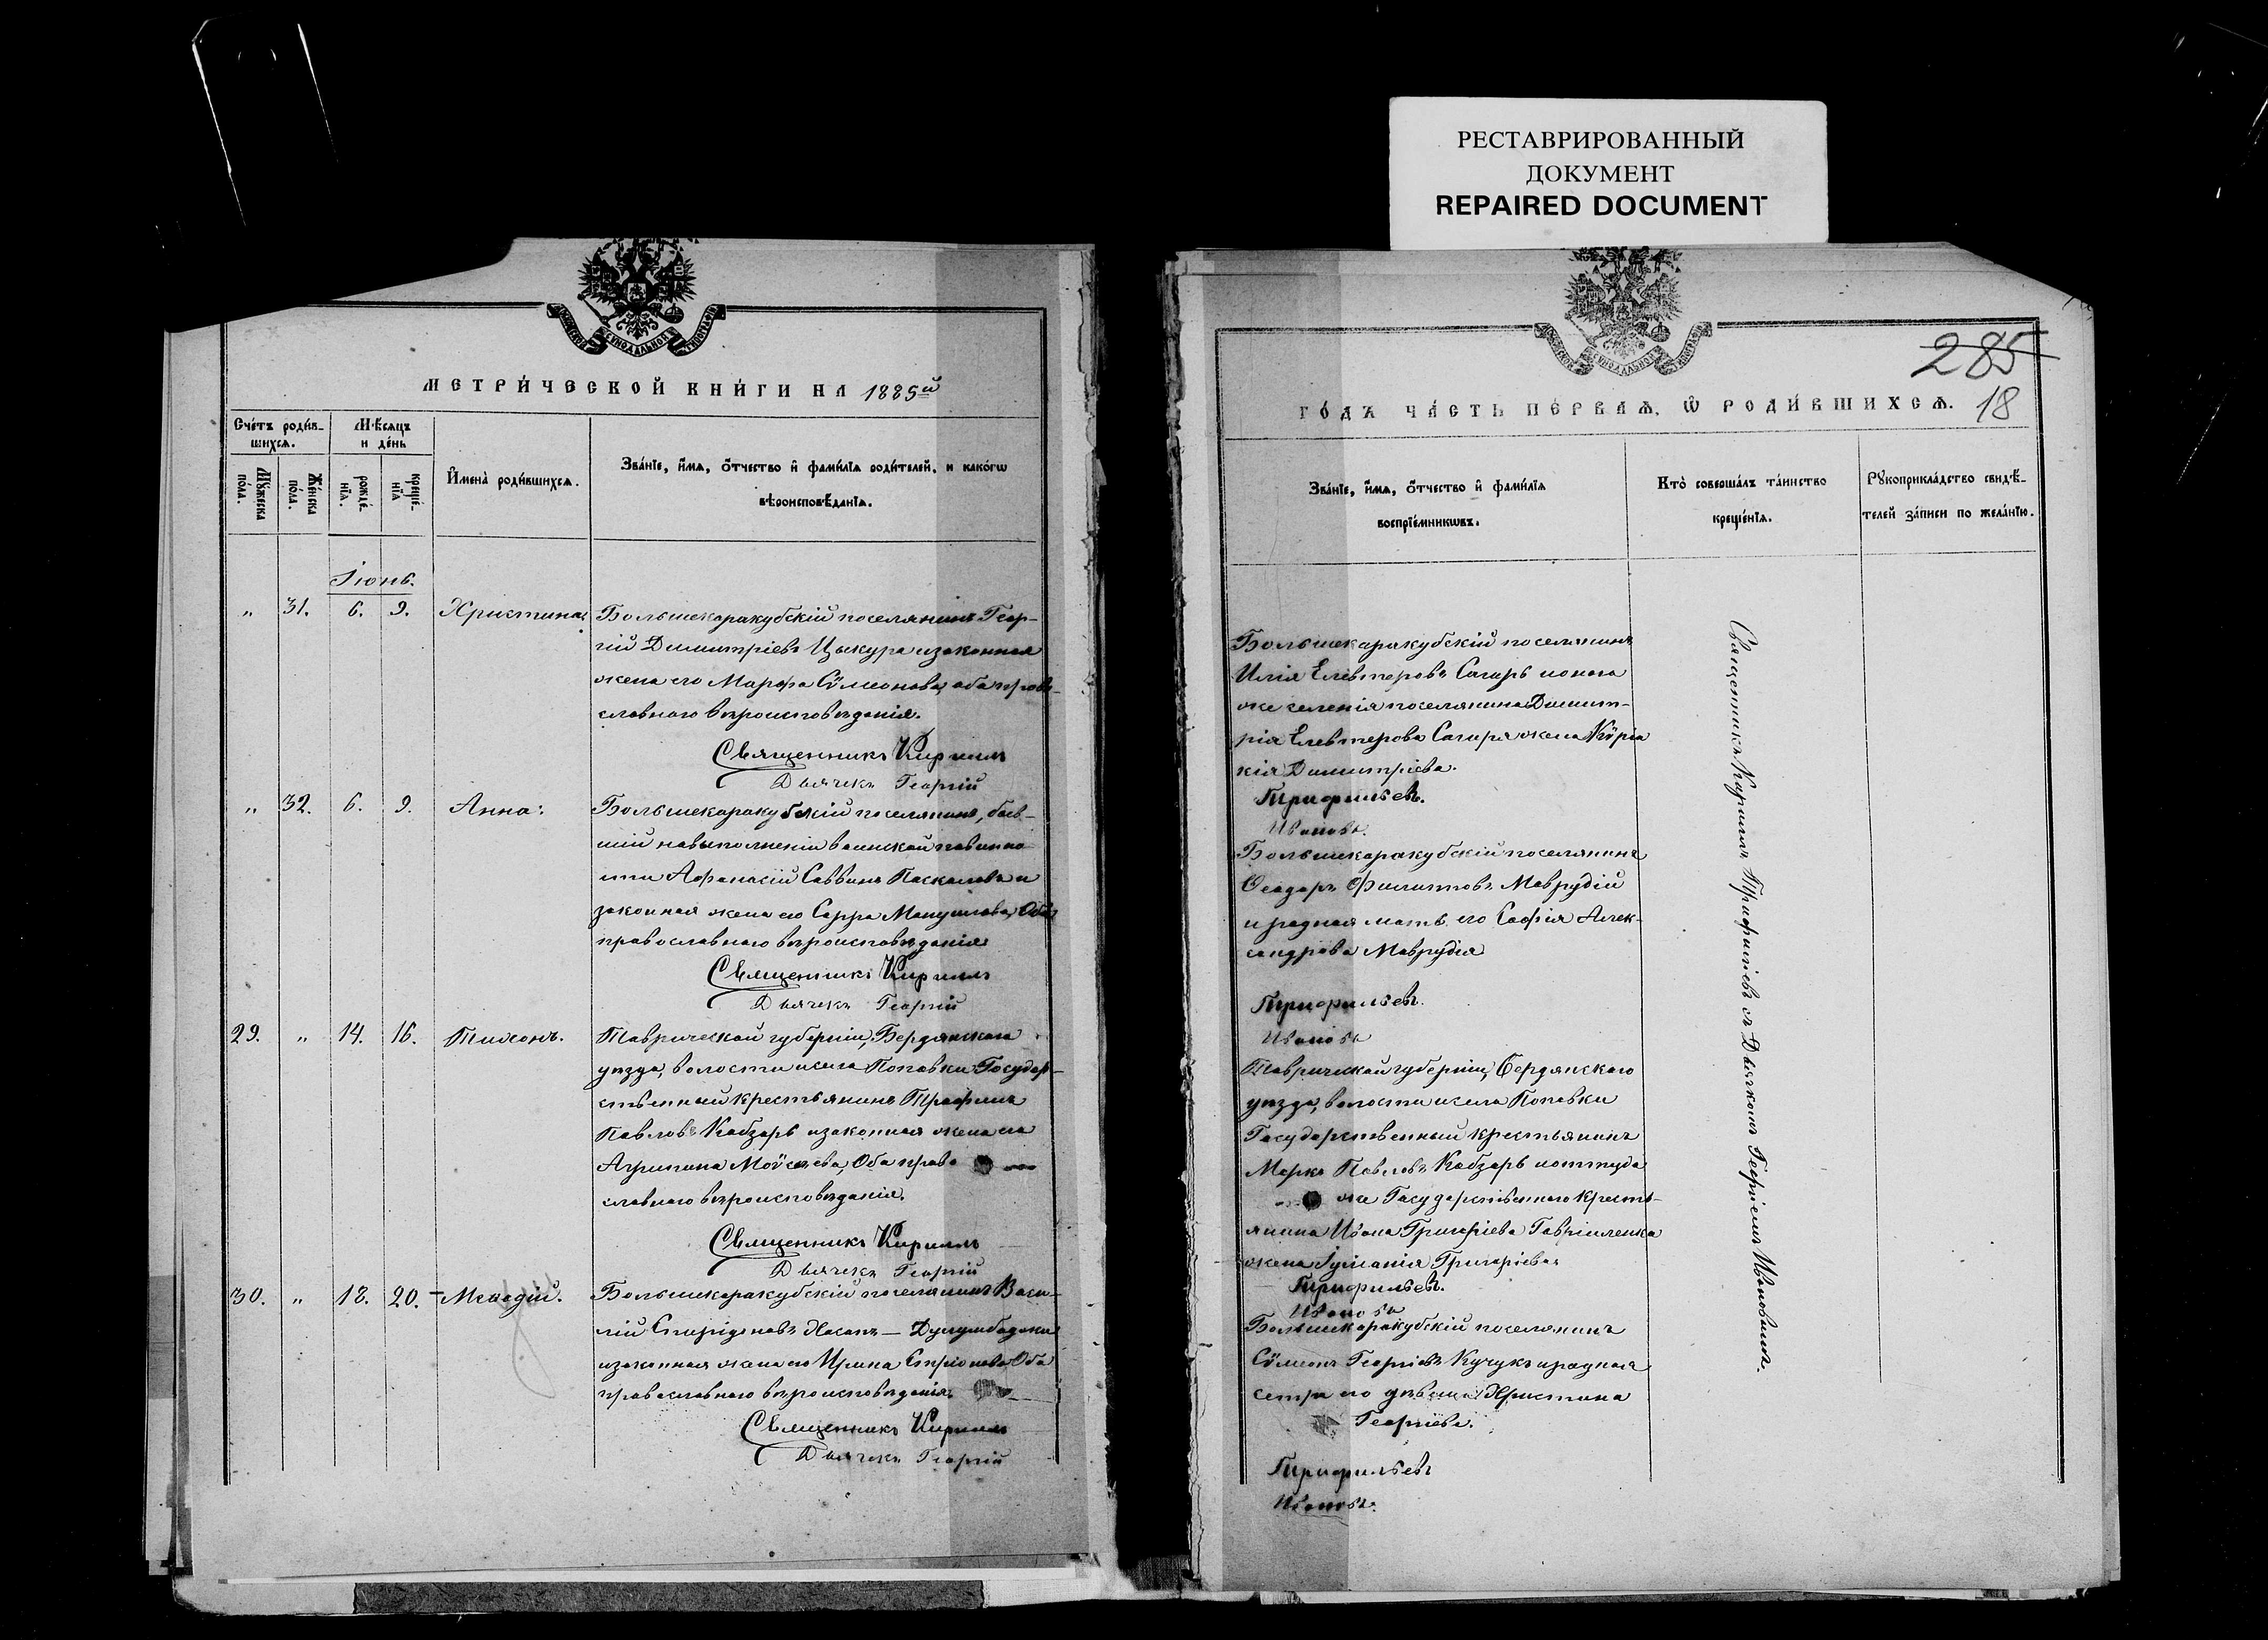 РЕСТАВРИРОВАННЫЙ
ДОКУМЕНТ
REPAIRED DOCUMENT
МЕТРИ́ЧЕСКОЙ КНИ́ГИ НА 1885й
Сче́тъ роди́в-
шихся.
Мѣ́сяцъ
и де́нь
Му́жеска
по́ла.
Же́нска
по́ла.
рожде́-
нїя.
креще́-
нїя
Имена̀ роди́вшихся.
Зва́нїе, и́мя, о́тчество и҆ фами́лїя роди́телей, и како́гѡ
вѣроисповѣ́данїя.
Іюнь.
„ 31. 6. 9. Христина
Большекаракубскій поселянинъ Геор-
гій Димитріевъ Цыкура и законная
жена его Марѳа Сѵмеонова, оба право-
славнаго вѣроисповѣданія.
Священникъ Кириллъ
Дьячекъ Георгій
„ 32. 6. 9. Анна:
Большекаракубскій поселянинъ, быв-
шій на выполненіи воинской повинно-
сти Аѳанасій Саввинъ Паскаловъ и
законная жена его Сарра Мануилова, Оба
православнаго вѣроисповѣданія
Священникъ Кириллъ
Дьячекъ Георгій
29. „ 14. 16. Тихонъ.
Таврической губерніи, Бердянскаго
уѣзда, волости и села Поповки Государ-
ственный крестьянинъ Трофимъ
Павловъ Кобзарь и законная жена его
Агрипина Моѵсеева, Оба право
славнаго вѣроисповѣданія.
Священникъ Кириллъ
Дьячекъ Георгій
30. „ 18. 20. Меѳодій.
Большекаракубскій поселянинъ Васи-
лій Спиридоновъ Хасапъ-
и законная жена его Ирина Оба
православнаго вѣроисповѣданія.
Священникъ Кириллъ
Дьячекъ Георгій
285
ГО́ДЪ ЧА́СТЬ ПЕ́РВАЯ, Ѡ РОДИ́ВШИХСЯ. 18
Зва́нїе, и́мя, о́тчество и҆ фами́лїя
воспрїе́мникѡвъ.
Кто̀ соверша́лъ та́инство
креще́нїя.
Рꙋкоприкла́дство свидѣ́-
телей за́писи по жела́нїю.
Большекаракубскій поселянинъ
Илія Елевтеровъ Сагиръ и онаго
же селенія поселянина Димит-
рія Елевтерова Сагиря жена Кѵриа
кія Димитріева.
Ивановъ.
Большекаракубскій поселянинъ
Ѳеодоръ Филипповъ Маврудій
и родная мать его Софія Алек-
сандрова Маврудія
Ивановъ
Таврической губерніи, Бердянскаго
уѣзда, волости и села Поповки
Государственный крестьянинъ
Марко Павловъ Кобзарь и оттуда
же Государственнаго кресть-
янина Ивана Григоріева Гавриленка
жена Іуліанія Григоріева
Ивановъ
Большекаракубскій поселянинъ
Сѵмеонъ Георгіевъ Кучукъ и родная
сестра его дѣвица Христина
Георгіева.
Ивановъ.
Священникъ Кириллъ съ Дьячкомъ Георгіемъ Ивановымъ.